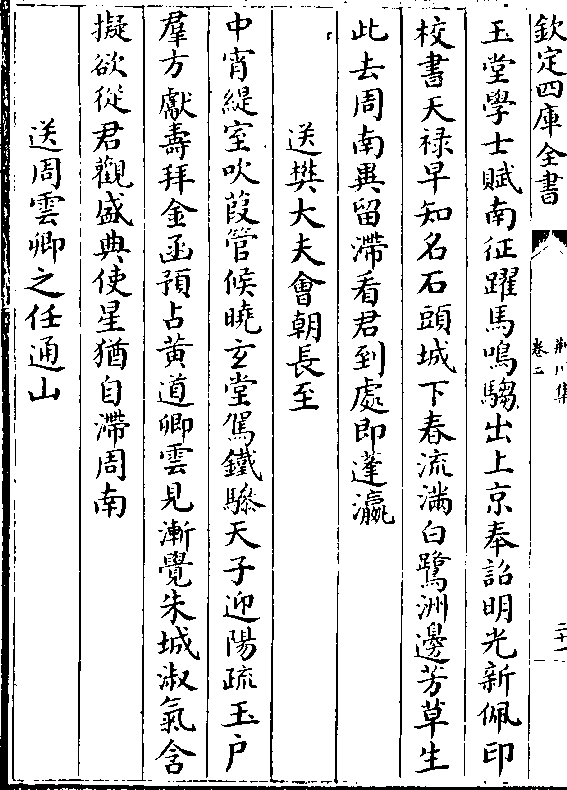 欽定四庫全書
荆川集
卷二
二十一
玉堂學士賦南征躍馬鳴騶出上京奉詔明光新佩印
校書天禄早知名石頭城下春流满白鷺洲邊芳草生
此去周南興留滯看君到處即蓬瀛
送樊大夫會朝長至
中宵緹室吹葭管候曉玄堂駕鐵驂天子迎陽疏玉户
羣方獻壽拜金函預占黄道卿雲見漸覺朱城淑氣含
擬欲從君觀盛典使星猶自滯周南
送周雲卿之任通山